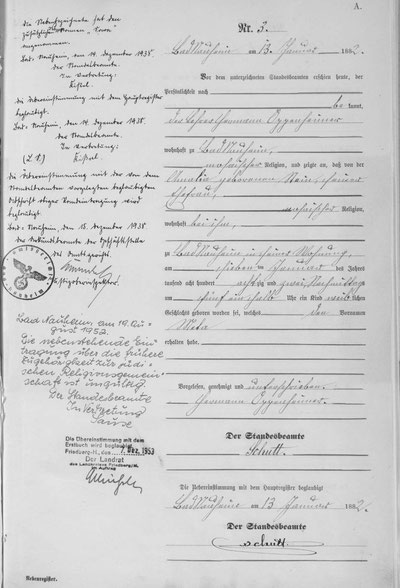 A.
Nr. 3.
Bad Nauheim am 13. Januar 1882.
Vor dem unterzeichneten Standesbeamten erschien heute, der
Persönlichkeit nach
be kannt,
der Lehrer Hermann Oppenheimer
wohnhaft zu Bad Nauheim,
mosaischer Religion, und zeigte an, daß von der
Amalie geborenen Stein, seiner
Ehefrau,
mosaischer Religion,
wohnhaft bei ihm,
zu Bad Nauheim in seiner Wohnung,
am sieben ten Januar des Jahres
tausend acht hundert acht zig und zwei, Nachmittags
um fünf ein halb Uhr ein Kind weib lichen
Geschlechts geboren worden sei, welches den Vornamen
Meta
erhalten habe.
Vorgelesen, genehmigt und unterschrieben.
Hermann Oppenheimer.
Der Standesbeamte
Schutt.
Die Uebereinstimmung mit dem Hauptregister beglaubigt
Bad Nauheim am 13 Januar 1882.
Der Standesbeamte
Schutt.
Die Nebenbezeichnete hat den
zusätzlichen Vornamen „Sara“
angenommen.
Bad-Nauheim, den 14. Dezember 1938.
der Standesbeamte.
In Vertretung:
die Übereinstimmung mit dem Hauptregister
beglaubigt.
Bad-Nauheim, den 14. Dezember 1938.
der Standesbeamte.
In Vertretung:
(L. S.)
die Übereinstimmung mit der von dem
Standesbeamten vorgelegten beglaubigten
Abschrift obiger Randeintragung wird
beglaubigt.
Bad-Nauheim, den 15. Dezember 1938
der Urkundsbeamte der Geschäftsstelle
des Amtsgerichts.
Justizobersekretär.
Bad Nauheim, am 19. Au-
gust 1952.
Die nebenstehende Ein-
tragung über die frühere
Zugehörigkeit zur jüdi-
schen Religionsgemein-
schaft ist ungültig.
Der Standesbeamte
In Vertretung
Die Übereinstimmung mit dem
Erstbuch wird beglaubigt.
Friedberg-H., den 7. Dez. 1953
Der Landrat
des Landkreises Friedberg/H.
Im Auftrag
Nebenregister.